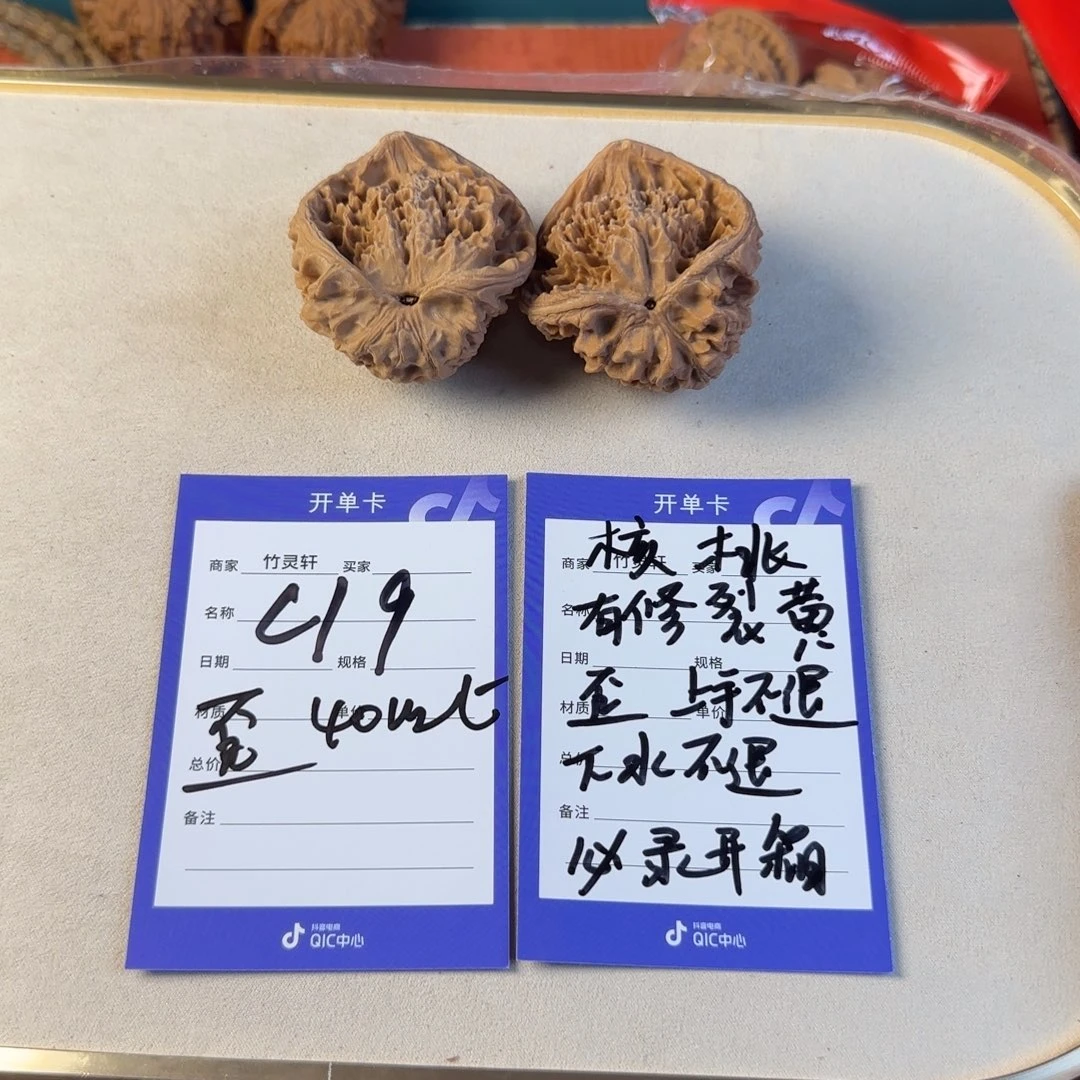 开单卡
商家 竹灵轩 买家
名称 C19
日期 规格
材质 单价
歪 40mm±
总价
备注
抖音电商
QIC中心
开单卡
商家 竹灵轩 买家
核桃
名称
有修 裂 黄
日期 规格
材质 单价
歪 上手不退
总价
下水不退
备注
必录开箱
抖音电商
QIC中心